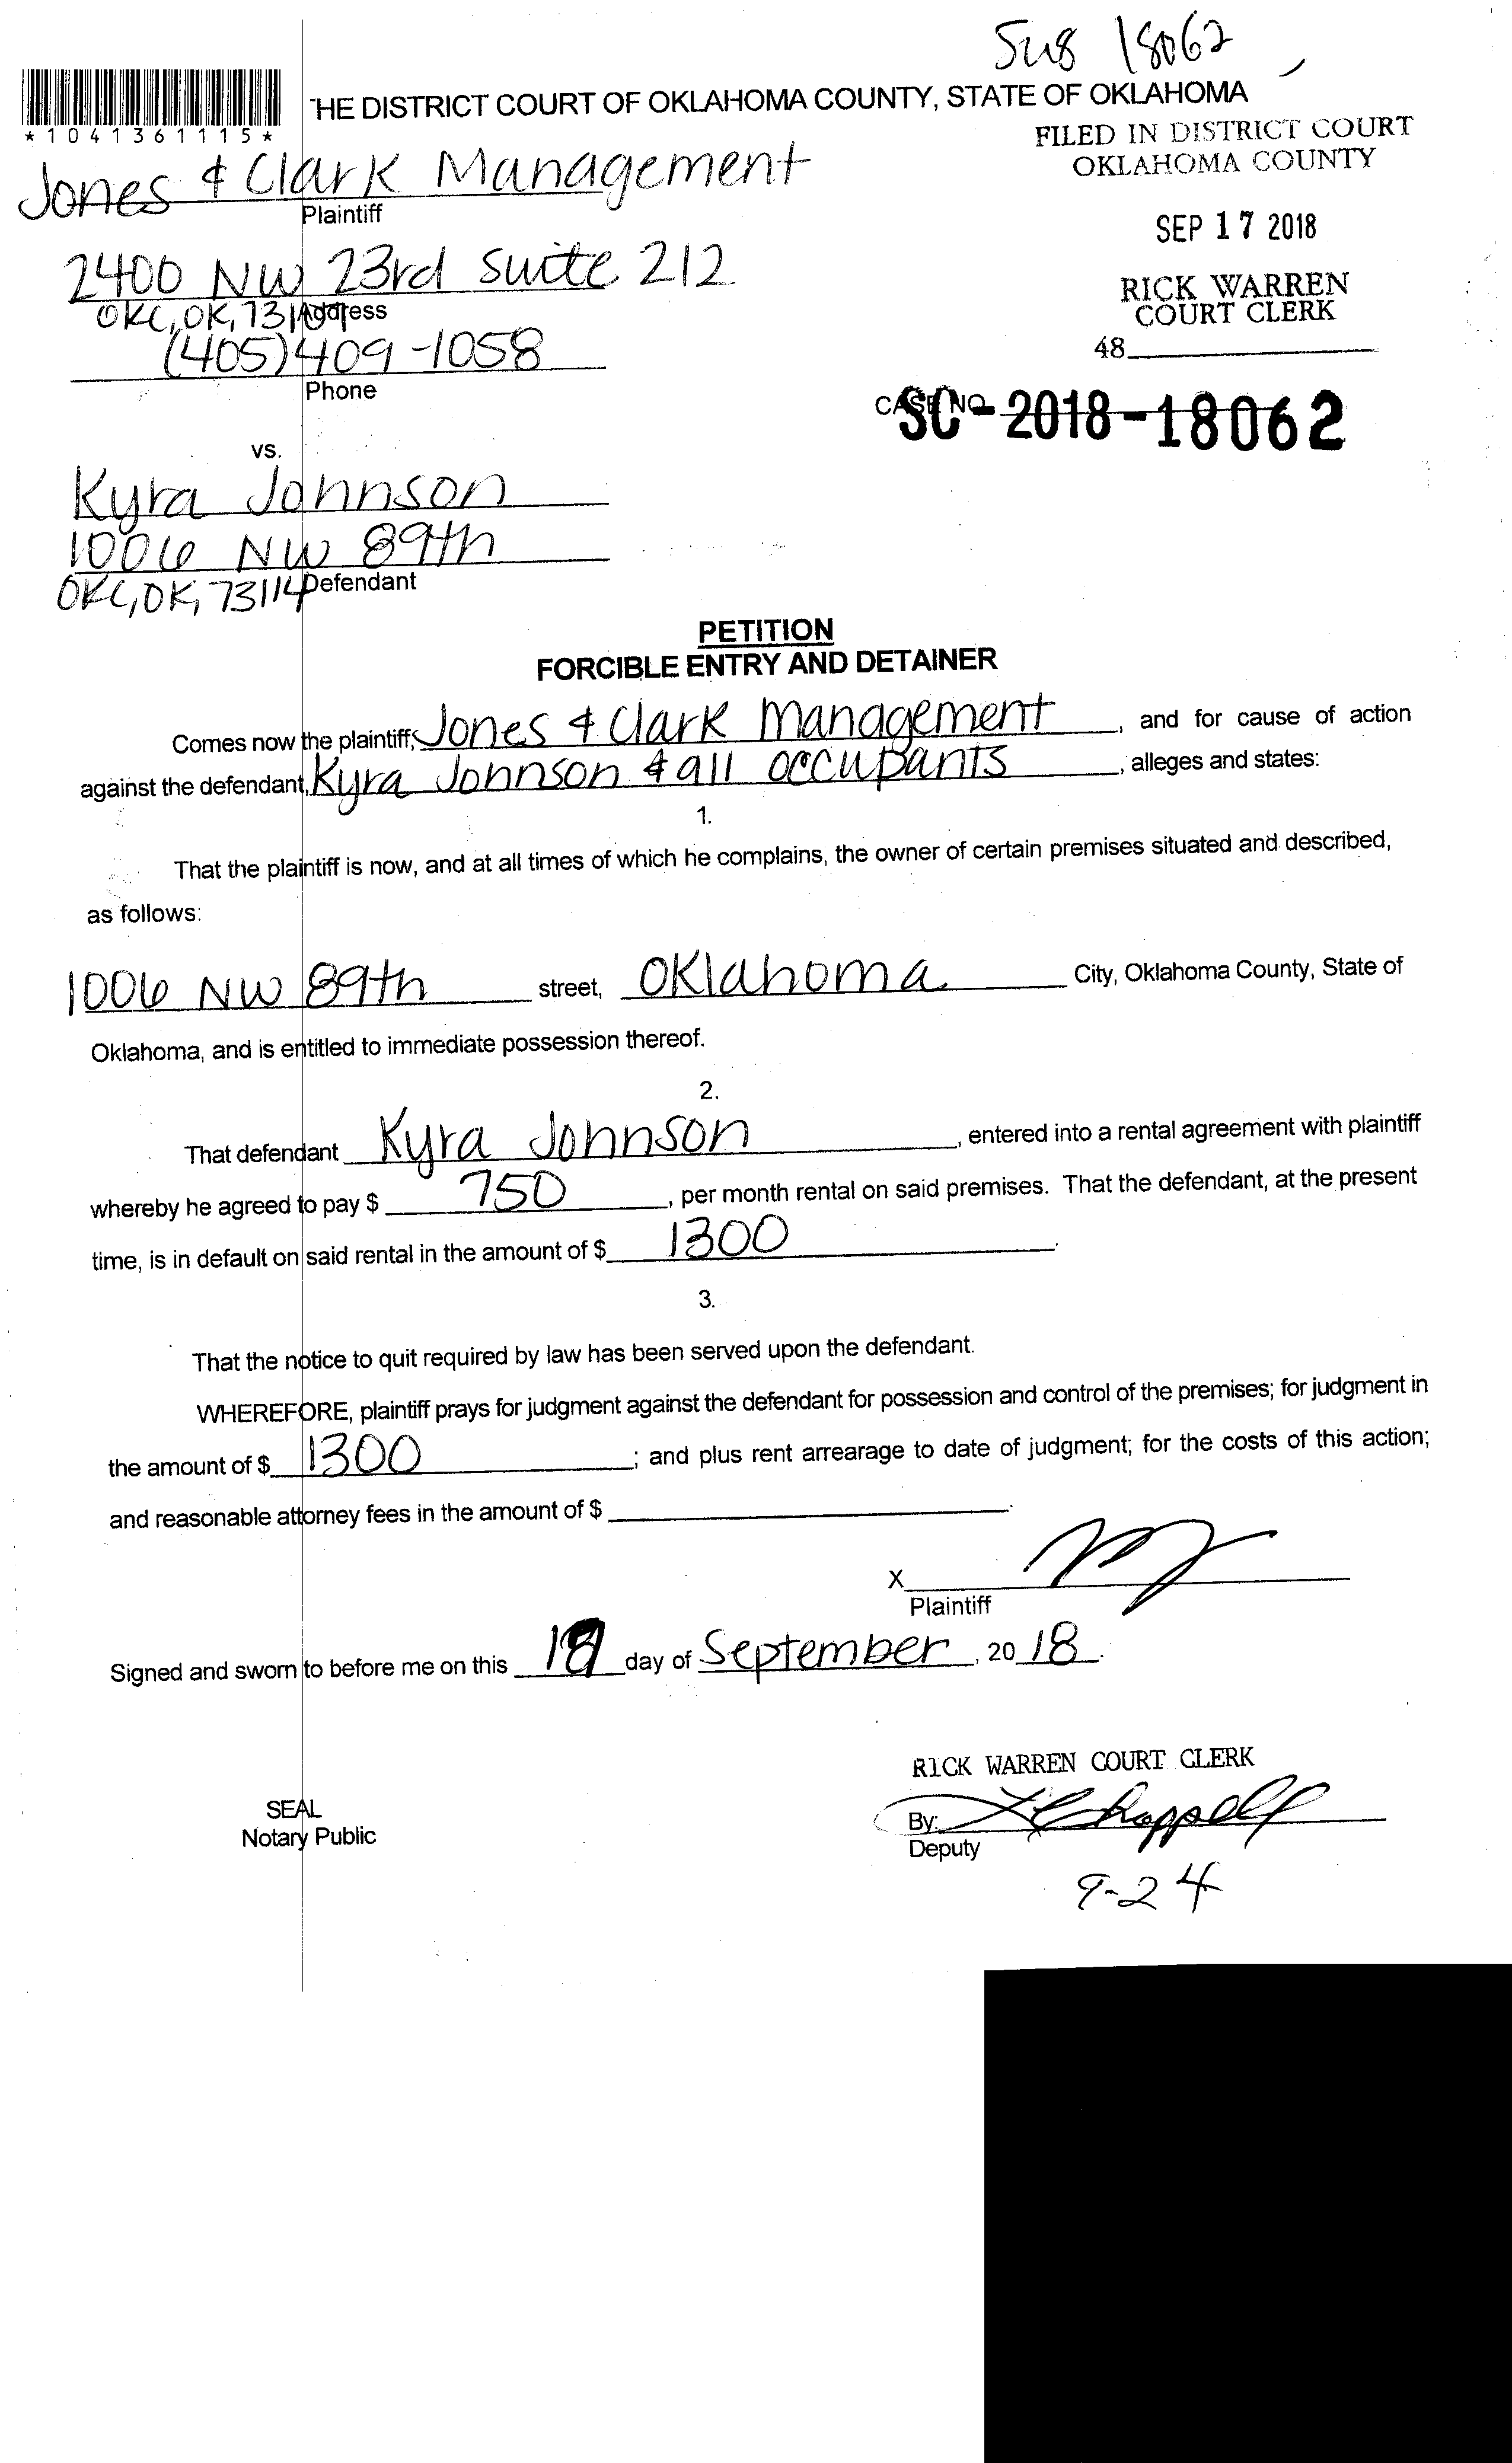 18062
THE DISTRICT COURT OF OKLAHOMA COUNTY, STATE OF OKLAHOMA
*1041361115*
FILED IN DISTRICT COURT
OKLAHOMA COUNTY
Jones & Clark Management
Plaintiff
SEP 17 2018
2400 NW 23rd suite 212
OKC, OK, 731
Address
RICK WARREN
COURT CLERK
(405)409-1058
Phone
48
CASE NO.
SC-2018-18062
vs.
Kyra Johnson
1006 NW 89th
OKC, OK, 73114
Defendant
PETITION
FORCIBLE ENTRY AND DETAINER
Comes now the plaintiff, Jones & Clark Management, and for cause of action
against the defendant, Kyra Johnson & all occupants, alleges and states:
1.
That the plaintiff is now, and at all times of which he complains, the owner of certain premises situated and described,
as follows:
1006 NW 89th street, Oklahoma City, Oklahoma County, State of
Oklahoma, and is entitled to immediate possession thereof.
2.
That defendant Kyra Johnson, entered into a rental agreement with plaintiff
whereby he agreed to pay $ 750, per month rental on said premises. That the defendant, at the present
time, is in default on said rental in the amount of $ 1300.
3.
That the notice to quit required by law has been served upon the defendant.
WHEREFORE, plaintiff prays for judgment against the defendant for possession and control of the premises; for judgment in
the amount of $ 1300; and plus rent arrearage to date of judgment; for the costs of this action;
and reasonable attorney fees in the amount of $
X
Plaintiff
Signed and sworn to before me on this day of September, 2018.
RICK WARREN COURT CLERK
SEAL
Notary Public
By:
Deputy
9-24